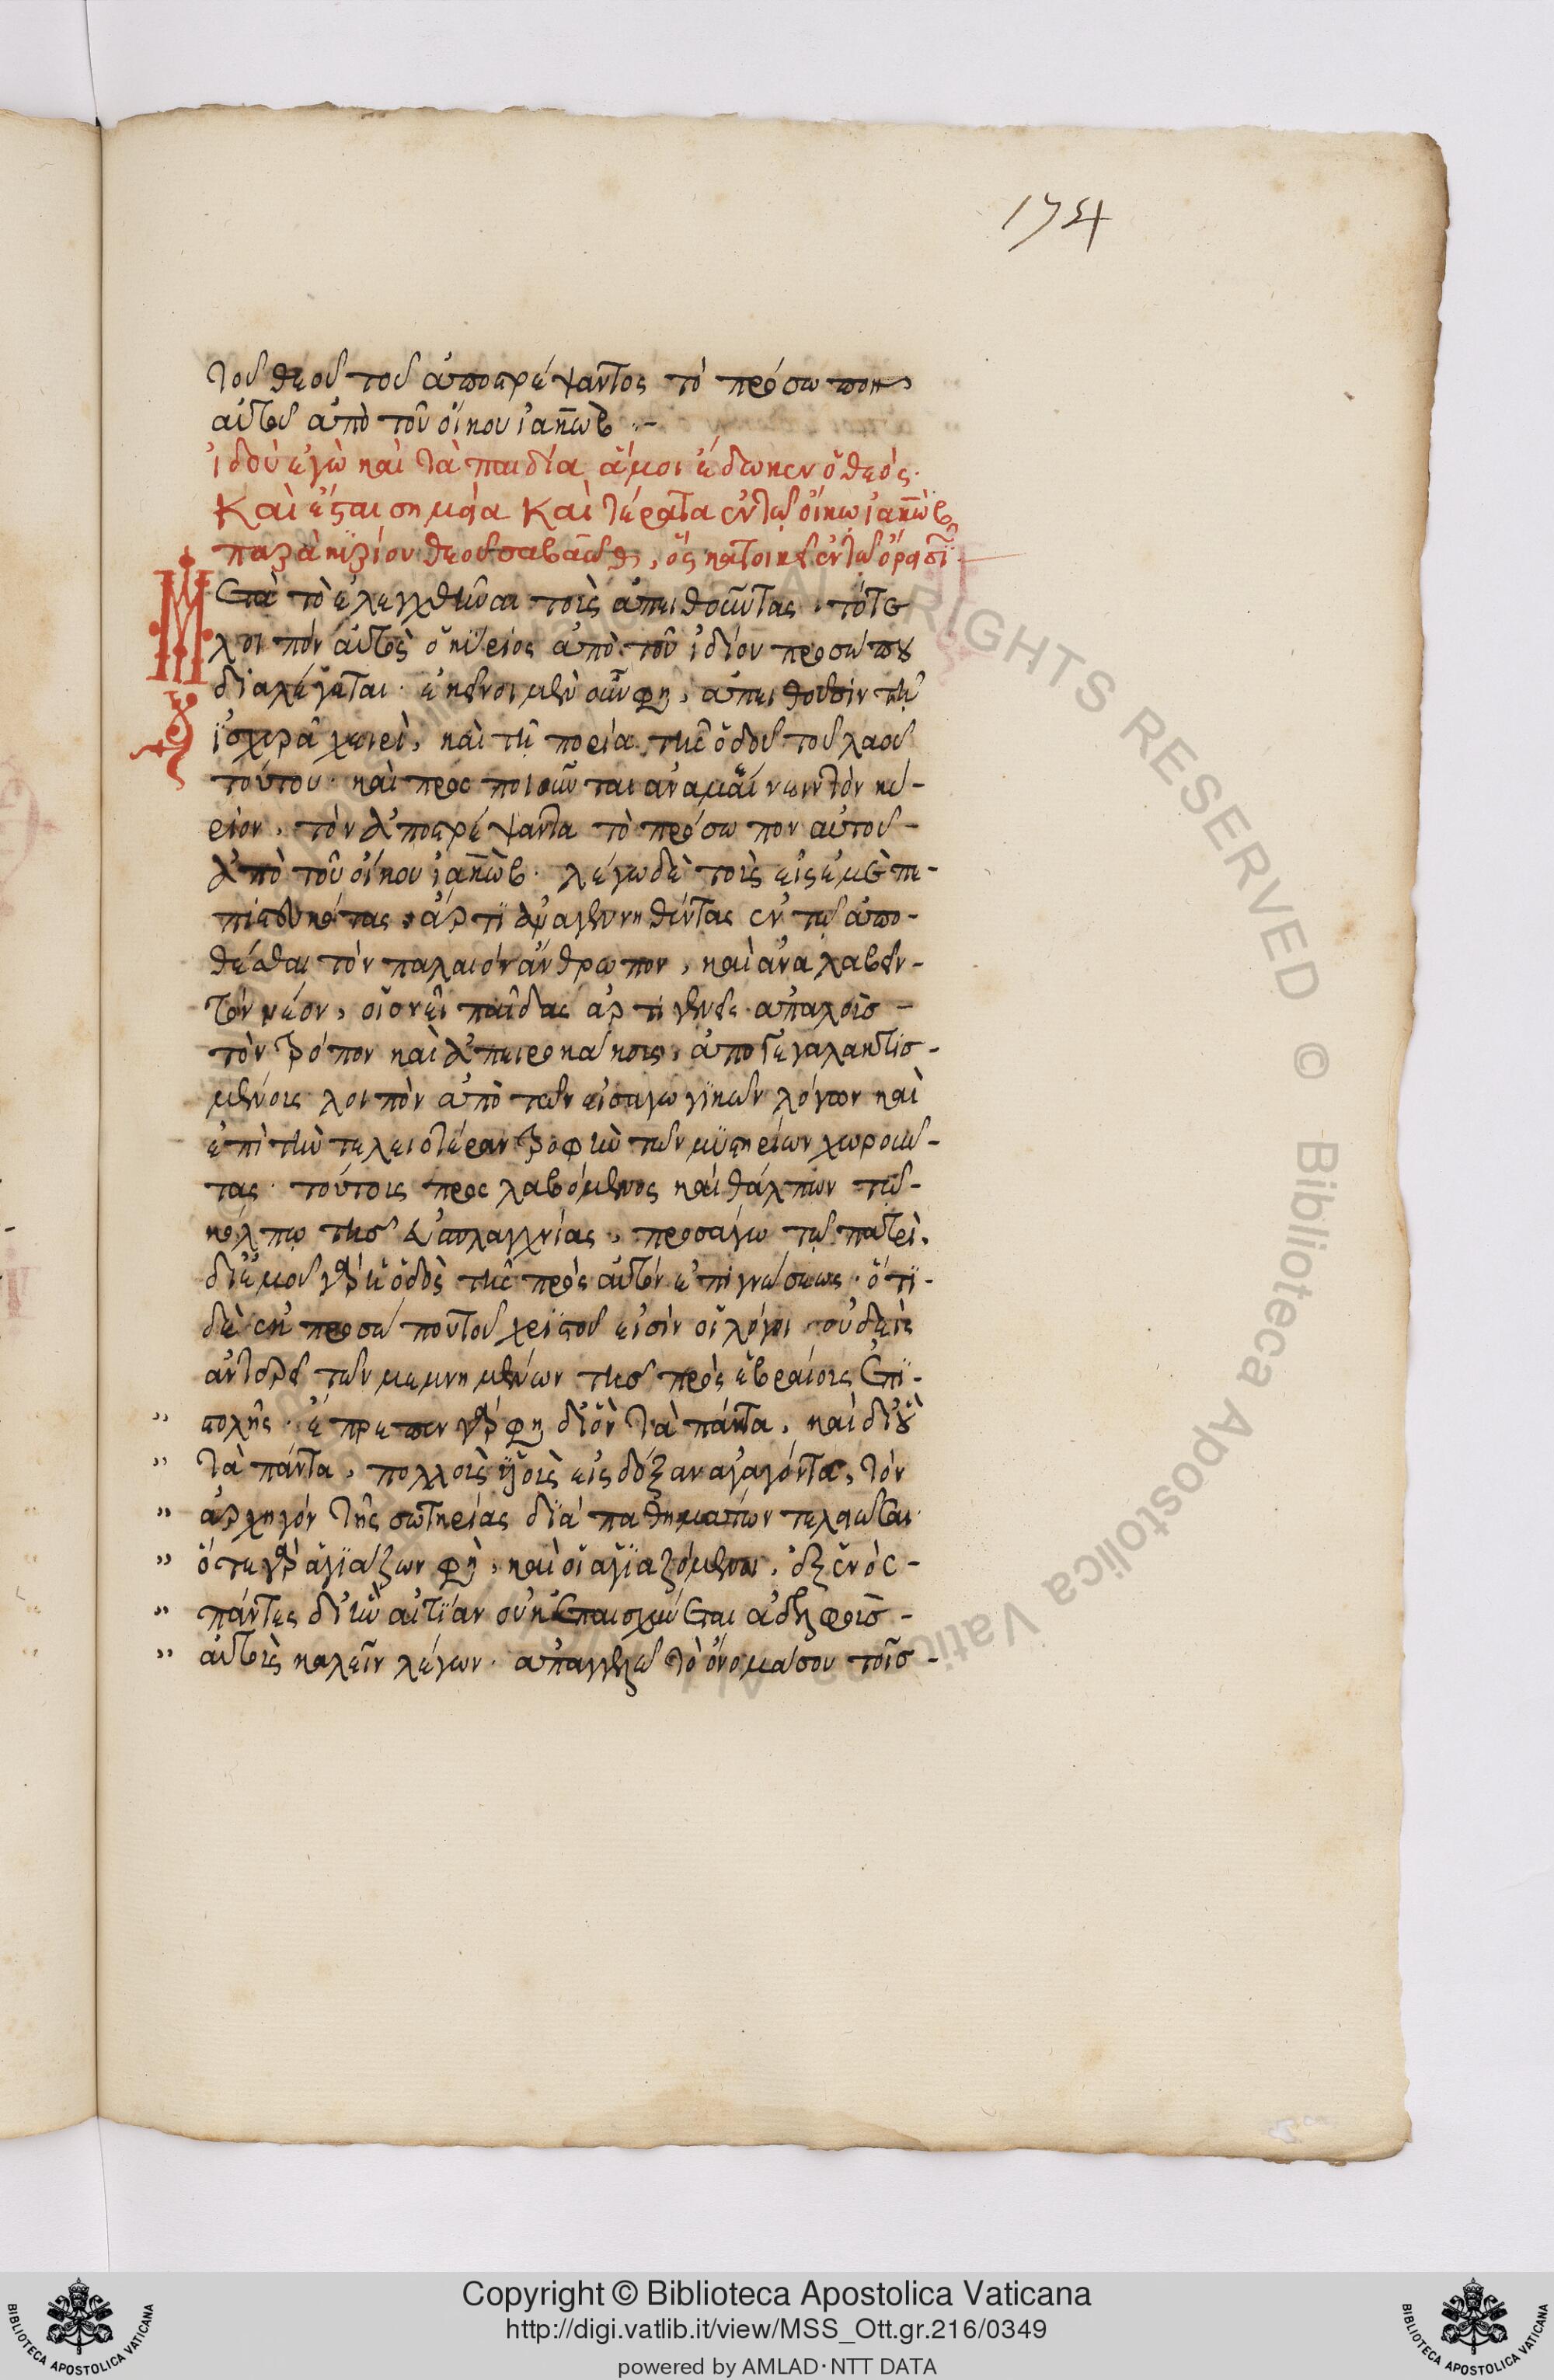 174
τοῦ θεοῦ τοῦ ἀποστρέψαντος τὸ πρόσωπον
αὐτοῦ ἀπὸ τοῦ οἴκου ἰακὼβ
ἰδοὺ ἐγὼ καὶ τὰ παιδία ἅ μοι ἔδωκεν ὁ θεός.
Καὶ ἔσται σημεῖα Καὶ τέρατα ἐν τῷ οἴκῳ ἰακὼβ
παρὰ κυρίου θεοῦ σαβαὼθ, ὃς κατοικεῖ ἐν τῷ ὄρει σιών
Μετὰ τὸ ἐλεγχθῆναι τοὺς ἀπειθοῦντας, τότε
λοιπὸν αὐτὸς ὁ κύριος ἀπὸ τοῦ ἰδίου προσώπου
διαλέγεται. ἐκεῖνοι μὲν οὖν φησὶ, ἀπειθοῦσιν τῇ
ἰσχυρᾷ χειρὶ, καὶ τῇ πορείᾳ τῆς ὁδοῦ τοῦ λαοῦ
τούτου. καὶ προσποιοῦνται ἀναμένειν τὸν κύ-
ριον, τὸν ἀποστρέψαντα τὸ πρόσωπον αὐτοῦ
ἀπὸ τοῦ οἴκου ἰακὼβ. λέγω δὲ τοὺς εἰς ἐμὲ πε-
πιστευκότας, ἄρτι ἀναγεννηθέντας ἐν τῷ ἀπο-
θέσθαι τὸν παλαιὸν ἄνθρωπον, καὶ ἀναλαβεῖν
τὸν νέον, οἱονεὶ παῖδας ἀρτιγενεῖς ἁπαλοὺς
τὸν τρόπον καὶ ἀπειροκάκους, ἀπογεγαλακτισ-
μένους λοιπὸν ἀπὸ τῶν εἰσαγωγικῶν λόγων καὶ
ἐπὶ τὴν τελειοτέραν τροφὴν τῶν μυστηρίων χωροῦν-
τας. τούτους προσλαβόμενος καὶ θάλπων τῷ
κόλπῳ τῆς εὐσπλαγχνίας, προσάγω τῷ πατρὶ.
δι᾽ ἐμοῦ γὰρ ἡ ὁδὸς τῆς πρὸς αὐτὸν ἐπιγνώσεως. ὅτι
δὲ ἐκ προσώπου τοῦ χριστοῦ εἰσὶν οἱ λόγοι, οὐδεὶς
ἀντερεῖ τῶν μεμνημένων τῆς πρὸς ἑβραίους ἐπι-
στολῆς. ἔπρεπεν γὰρ φησὶ δι᾽ ὃν τὰ πάντα, καὶ δι᾽ οὗ
τὰ πάντα, πολλοὺς υἱοὺς εἰς δόξαν ἀγαγόντα, τὸν
ἀρχηγὸν τῆς σωτηρίας διὰ παθημάτων τελειῶσαι.
ὅ τε γὰρ ἁγιάζων φησὶ, καὶ οἱ ἁγιαζόμενοι, ἐξ ἑνὸς
πάντες δι᾽ ἣν αἰτίαν οὐκ ἐπαισχύνεται ἀδελφοὺς
αὐτοὺς καλεῖν λέγων. ἀπαγγελῶ τὸ ὄνομά σου τοῖς
ALL RIGHTS RESERVED © Biblioteca Apostolica Vaticana
Copyright © Biblioteca Apostolica Vaticana
http://digi.vatlib.it/view/MSS_Ott.gr.216/0349
powered by AMLAD·NTT DATA
BIBLIOTECA APOSTOLICA VATICANA
BIBLIOTECA APOSTOLICA VATICANA